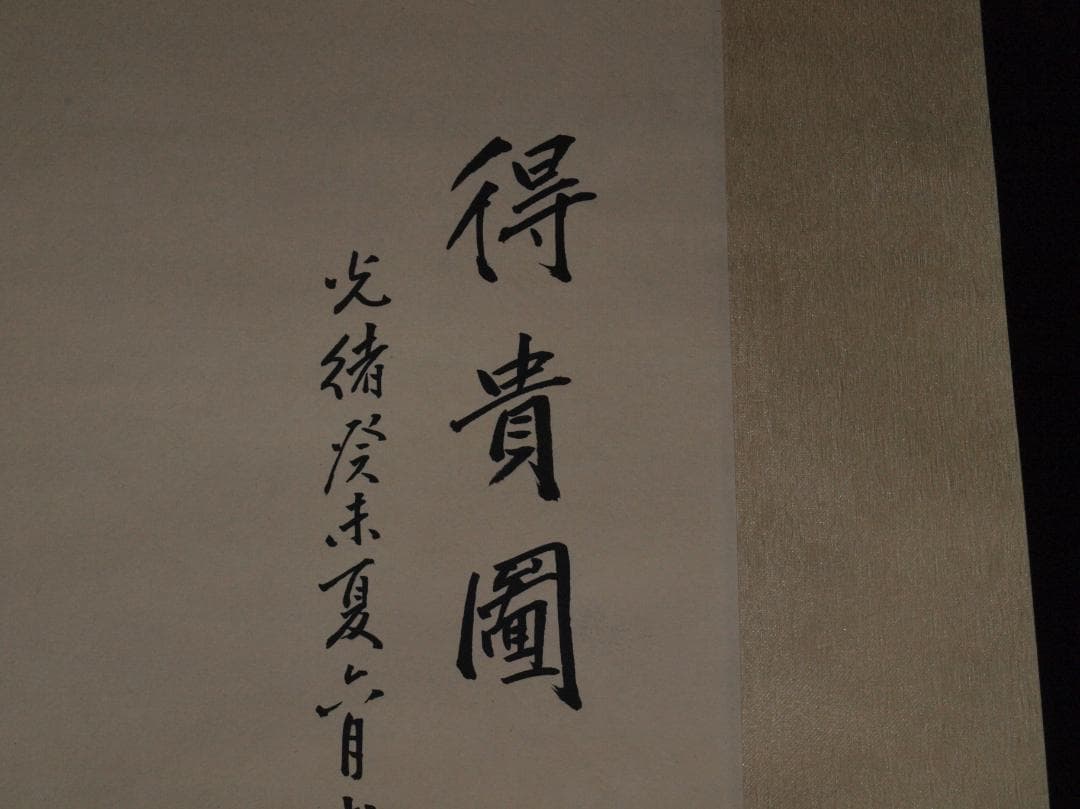 得貴圖
光緒癸未夏六月